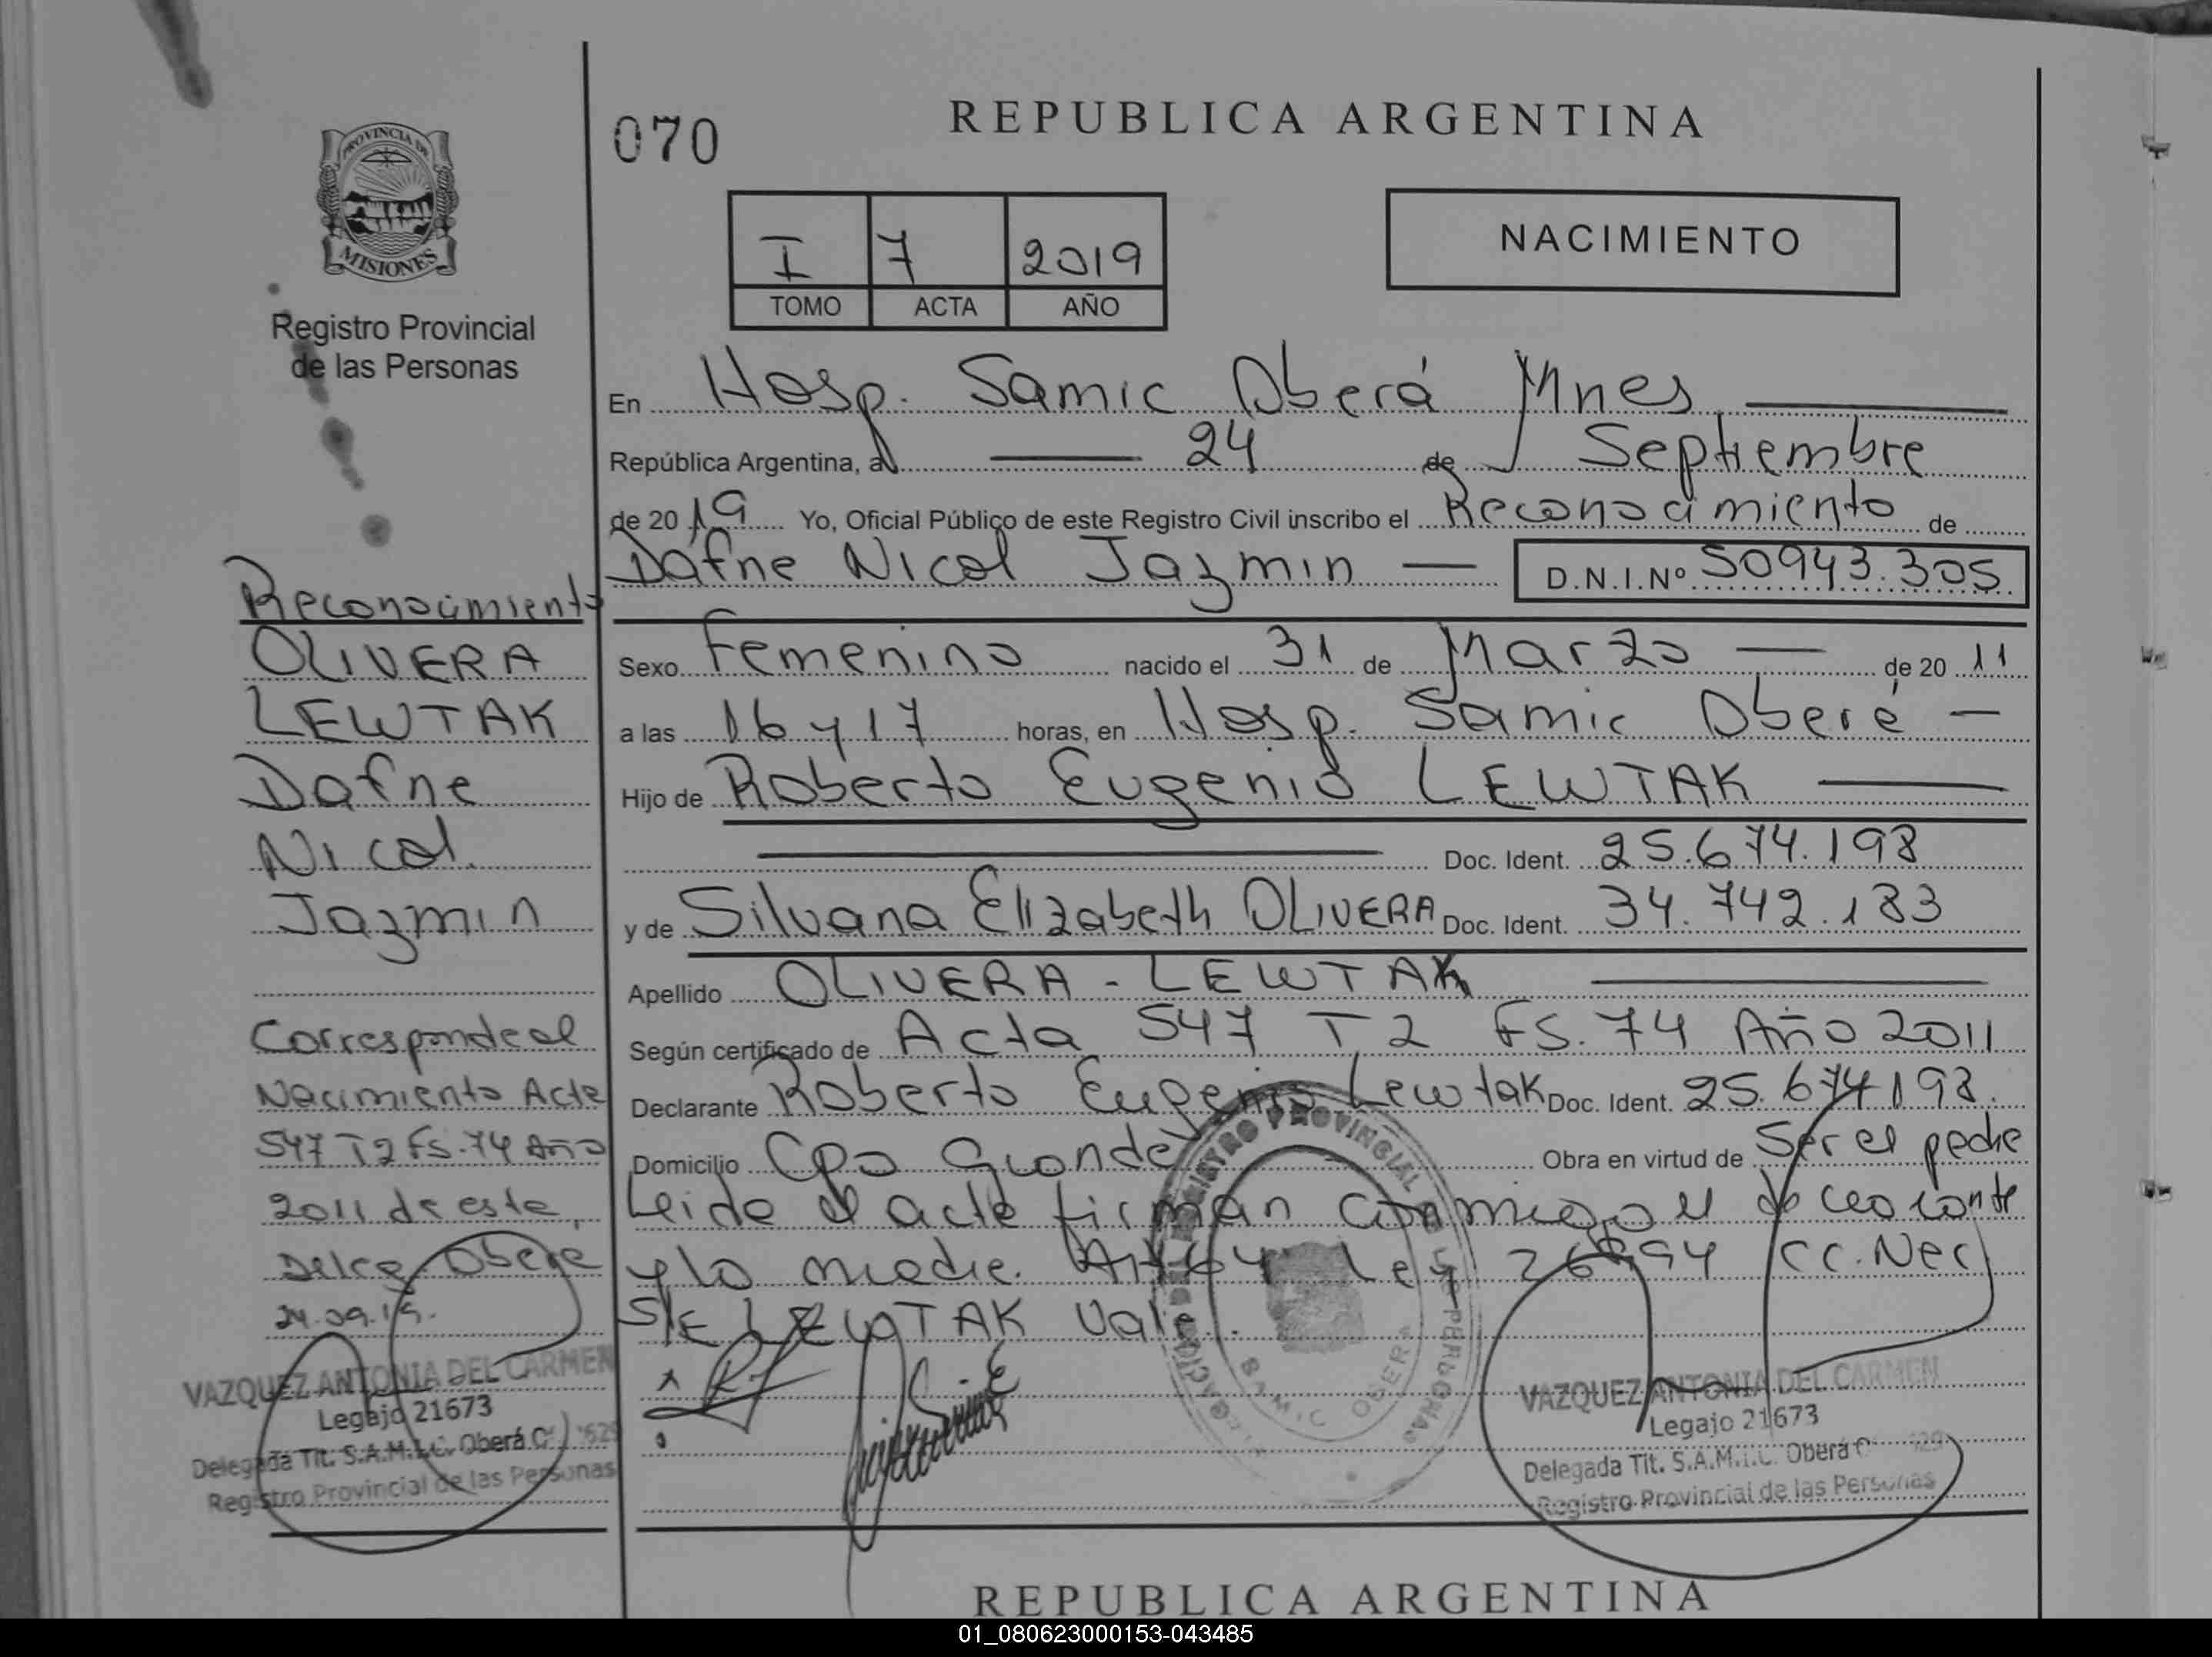 070
REPUBLICA ARGENTINA
PROVINCIA DE
MISIONES
Registro Provincial
de las Personas
I 7 2019
TOMO ACTA AÑO
NACIMIENTO
En Hosp. Samic Oberá Mnes
República Argentina, a 24 de Septiembre
de 2019 Yo, Oficial Público de este Registro Civil inscribo el Reconocimiento de
Dafne Nicol Jazmin D.N.I.Nº 50943.305
Sexo Femenino nacido el 31 de Marzo de 2011
a las 16 y 17 horas, en Hosp. Samic Oberá
Hijo de Roberto Eugenio LEWTAK
Doc. Ident. 25.674.198
y de Silvana Elizabeth OLIVERA Doc. Ident. 34.742.183
Apellido OLIVERA - LEWTAK
Según certificado de Acta 547 T 2 FS. 74 Año 2011
Declarante Roberto Eugenio Lewtak Doc. Ident. 25.674198.
Domicilio Cpo Grande Obra en virtud de Ser el padre
Leida el acta firman conmigo el
y la madre. Art 64 Ley 26994 CC. Nac
S/E LEWTAK Vale.
Reconocimiento
OLIVERA
LEWTAK
Dafne
Nicol
Jazmin
Corresponde al
Nacimiento Acta
547 T2 FS. 74 Año
2011 de esta
Deleg Oberá
24.09.19.
VAZQUEZ ANTONIA DEL CARMEN
Legajo 21673
Delegada Tit. S.A.M.I.C. Oberá
Registro Provincial de las Personas
REGISTRO PROVINCIAL DE LAS PERSONAS
SAMIC OBERA
VAZQUEZ ANTONIA DEL CARMEN
Legajo 21673
Delegada Tit. S.A.M.I.C. Oberá
Registro Provincial de las Personas
REPUBLICA ARGENTINA
01_080623000153-043485